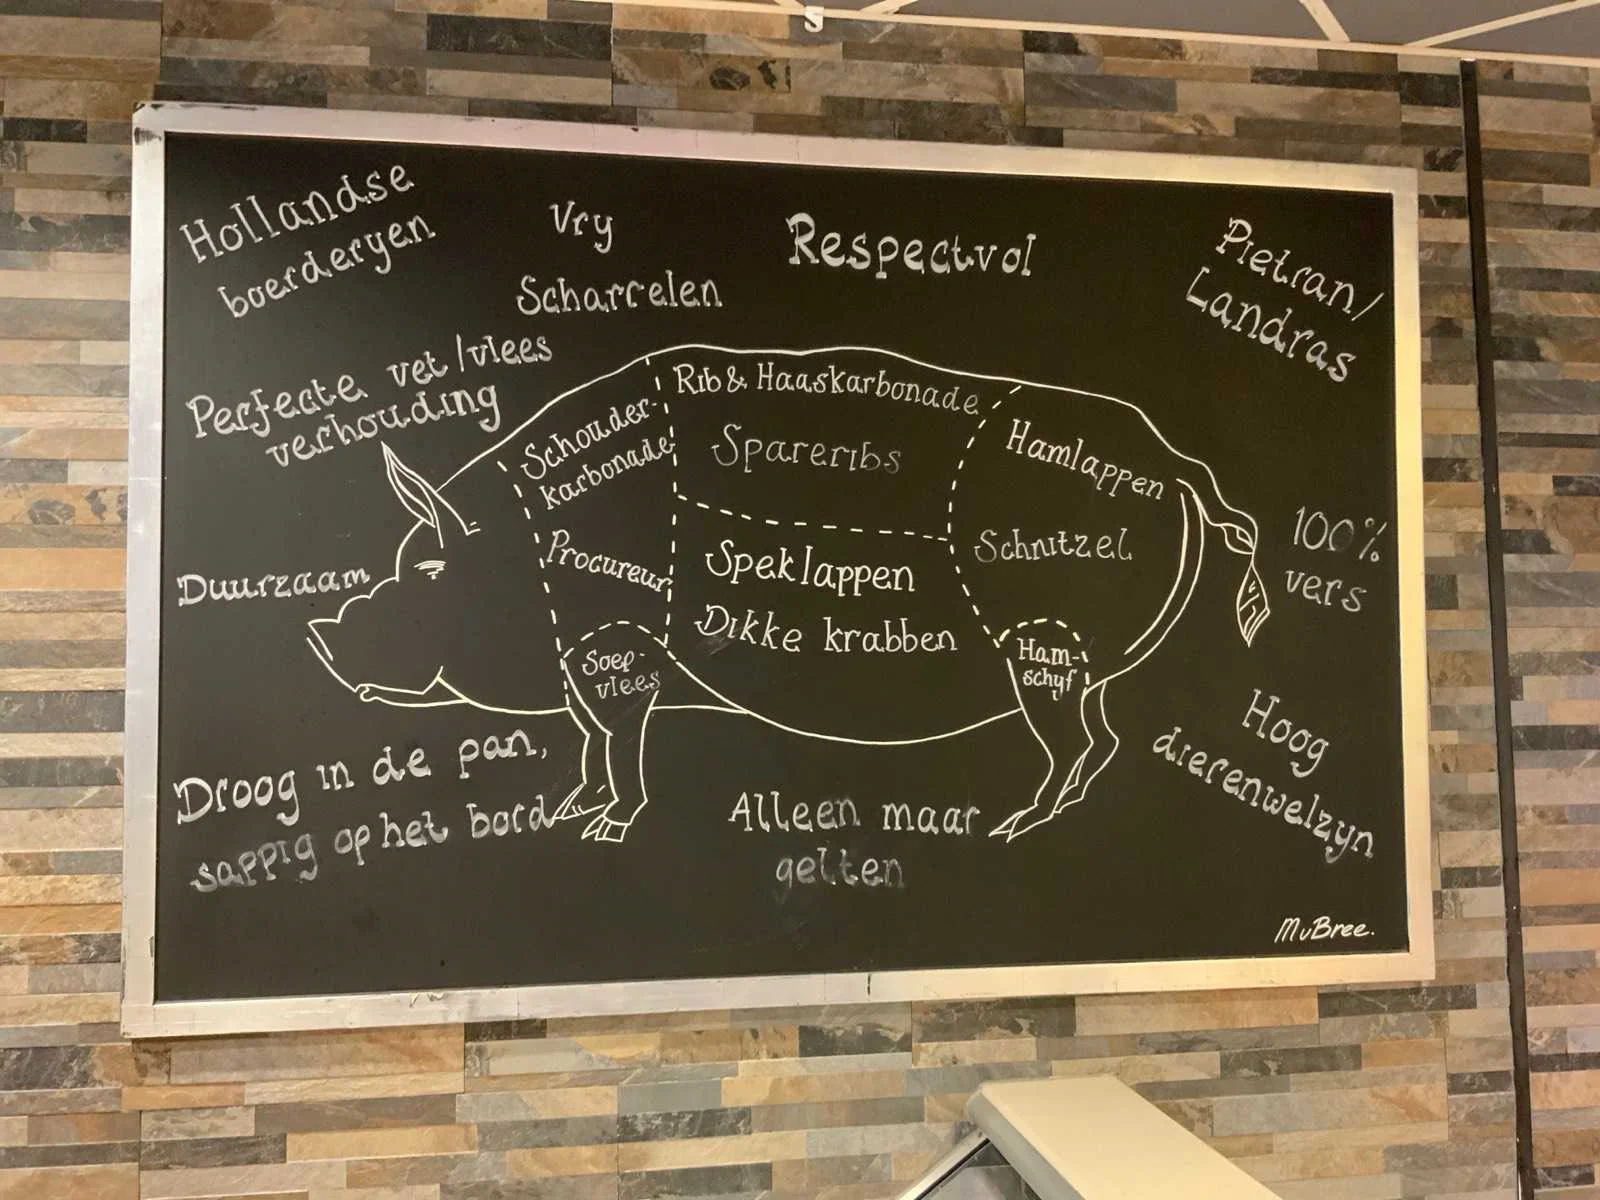 Hollandse
boerderyen
Vry
Scharrelen
Respectvol
Pietran/
Landras
Perfecte vet/vlees
verhouding
Duurzaam
Schouder-
karbonade
Procureur
Soep-
vlees
Rib & Haaskarbonade
Spareribs
Speklappen
Dikke krabben
Hamlappen
Schnitzel
Ham-
schyf
100%
vers
Hoog
dierenwelzyn
Droog in de pan,
sappig op het bord
Alleen maar
gelten
MvBree.